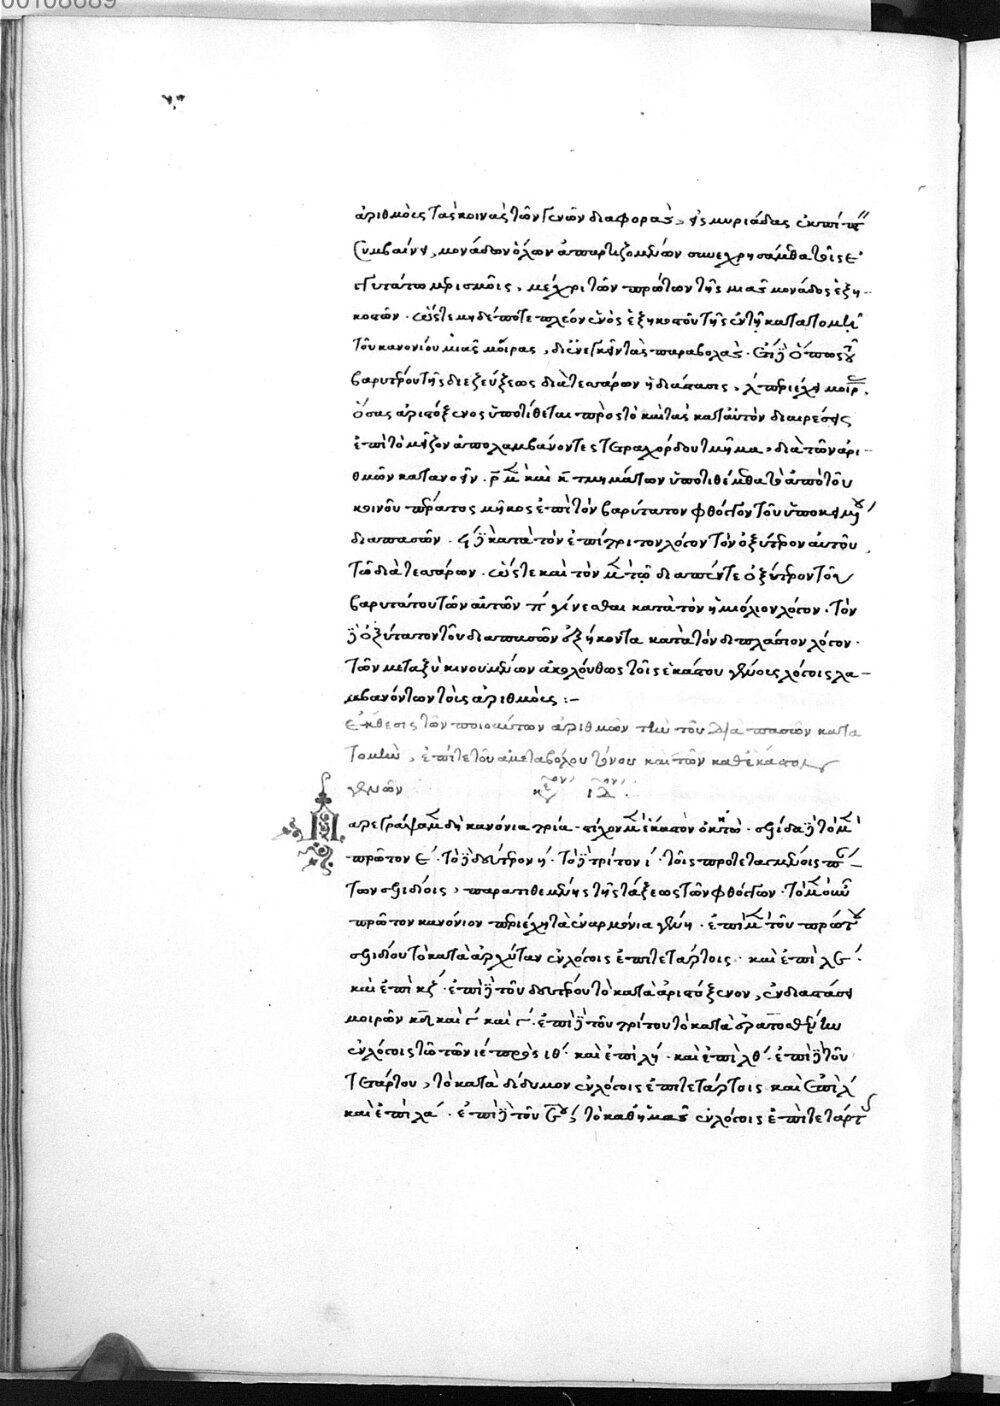 00108689
ἀριθμοὺς τὰς κοινὰς τῶν γενῶν διαφορὰς, εἰς μυριάδας ἐκπίπτ
συμβαίνει, μονάδων ὅλων ἀπαρτιζομένων συνεχρησάμεθα τοῖς
ἐγγυτάτω μερισμοῖς, μέχρι τῶν πρώτων τῆς μιᾶς μονάδος ἑξη-
κοστῶν. ὥστε μηδέποτε πλέον ἑνὸς ἑξηκοστοῦ τῆς ἐν τῇ κατατομῇ
τοῦ κανονίου μιᾶς μοίρας, διενεγκεῖν τὰς παραβολάς.
βαρυτέρου τῆς διεζεύξεως διὰ τεσσάρων ἡ διάστασις, λ περιέχει μοίρ
ὅσας ἀριστόξενος ὑποτίθεται πρὸς τὸ καὶ τὰς κατ' αὐτὸν διαιρέσεις
ἐπὶ τὸ μεῖζον ἀπολαμβάνοντες τετραχόρδου τμῆμα, διὰ τῶν ἀρι-
θμῶν κατανοεῖν. ρ μ καὶ κ τμημάτων ὑποτιθέμεθα τὸ ἀπὸ τοῦ
κοινοῦ πέρατος μῆκος ἐπὶ τὸν βαρύτατον φθόγγον τοῦ ὑποκειμ
διαπασῶν. κατὰ τὸν ἐπίτριτον λόγον τὸν ὀξύτερον αὐτοῦ
τῷ διὰ τεσσάρων. ὥστε καὶ τὸν μ τῷ διαπέντε ὀξύτερον τοῦ
βαρυτάτου τῶν αὐτῶν π γίνεσθαι κατὰ τὸν ἡμιόλιον λόγον. τὸν
δ ὀξύτατον τοῦ διαπασῶν ἑξήκοντα κατὰ τὸν διπλάσιον λόγον.
τῶν μεταξὺ κινουμένων ἀκολούθως τοῖς ἑκάστου γένους λόγοις λα-
μβανόντων τοὺς ἀριθμοὺς :-
ἔκθεσις τῶν ποιούντων ἀριθμῶν τὴν τοῦ διὰ πασῶν κατα
τομὴν, ἐπί τε τοῦ ἀμεταβόλου τόνου καὶ τῶν καθ' ἕκαστον
γενῶν ιδ.
Παρεγράψαμ δὴ κανόνια τρία στίχων μ ἕκαστον ὀκτὼ. σελίδας δ τὸ μ
πρῶτον ε. τὸ δ δεύτερον η. τὸ δ τρίτον ι. τοῖς προτεταγμένοις
των σελιδίοις, παρατιθεμένης τῆς τάξεως τῶν φθόγγων. τὸ μ οὖν
πρῶτον κανόνιον περιέχει τὰ ἐναρμόνια γένη. ἐπὶ μ τοῦ πρώτ
σελιδίου τὸ κατὰ ἀρχύταν ἐν λόγοις ἐπιτετάρτοις. καὶ ἐπὶ λε.
καὶ ἐπὶ κζ. ἐπὶ δ τοῦ δευτέρου τὸ κατὰ ἀριστόξενον, ἐν διαστάσει
μοιρῶν κδ καὶ γ καὶ γ. ἐπὶ δ τοῦ τρίτου τὸ κατὰ ἐρατοσθένην
ἐν λόγοις τῷ τῶν ιε πρὸς ιθ. καὶ ἐπὶ λη. καὶ ἐπὶ λθ. ἐπὶ δ τοῦ
τετάρτου, τὸ κατὰ δίδυμον ἐν λόγοις ἐπιτετάρτοις καὶ ἐπὶ λ
καὶ ἐπὶ λα. ἐπὶ δ τοῦ τὸ καθ' ἡμᾶς ἐν λόγοις ἐπιτετάρτ